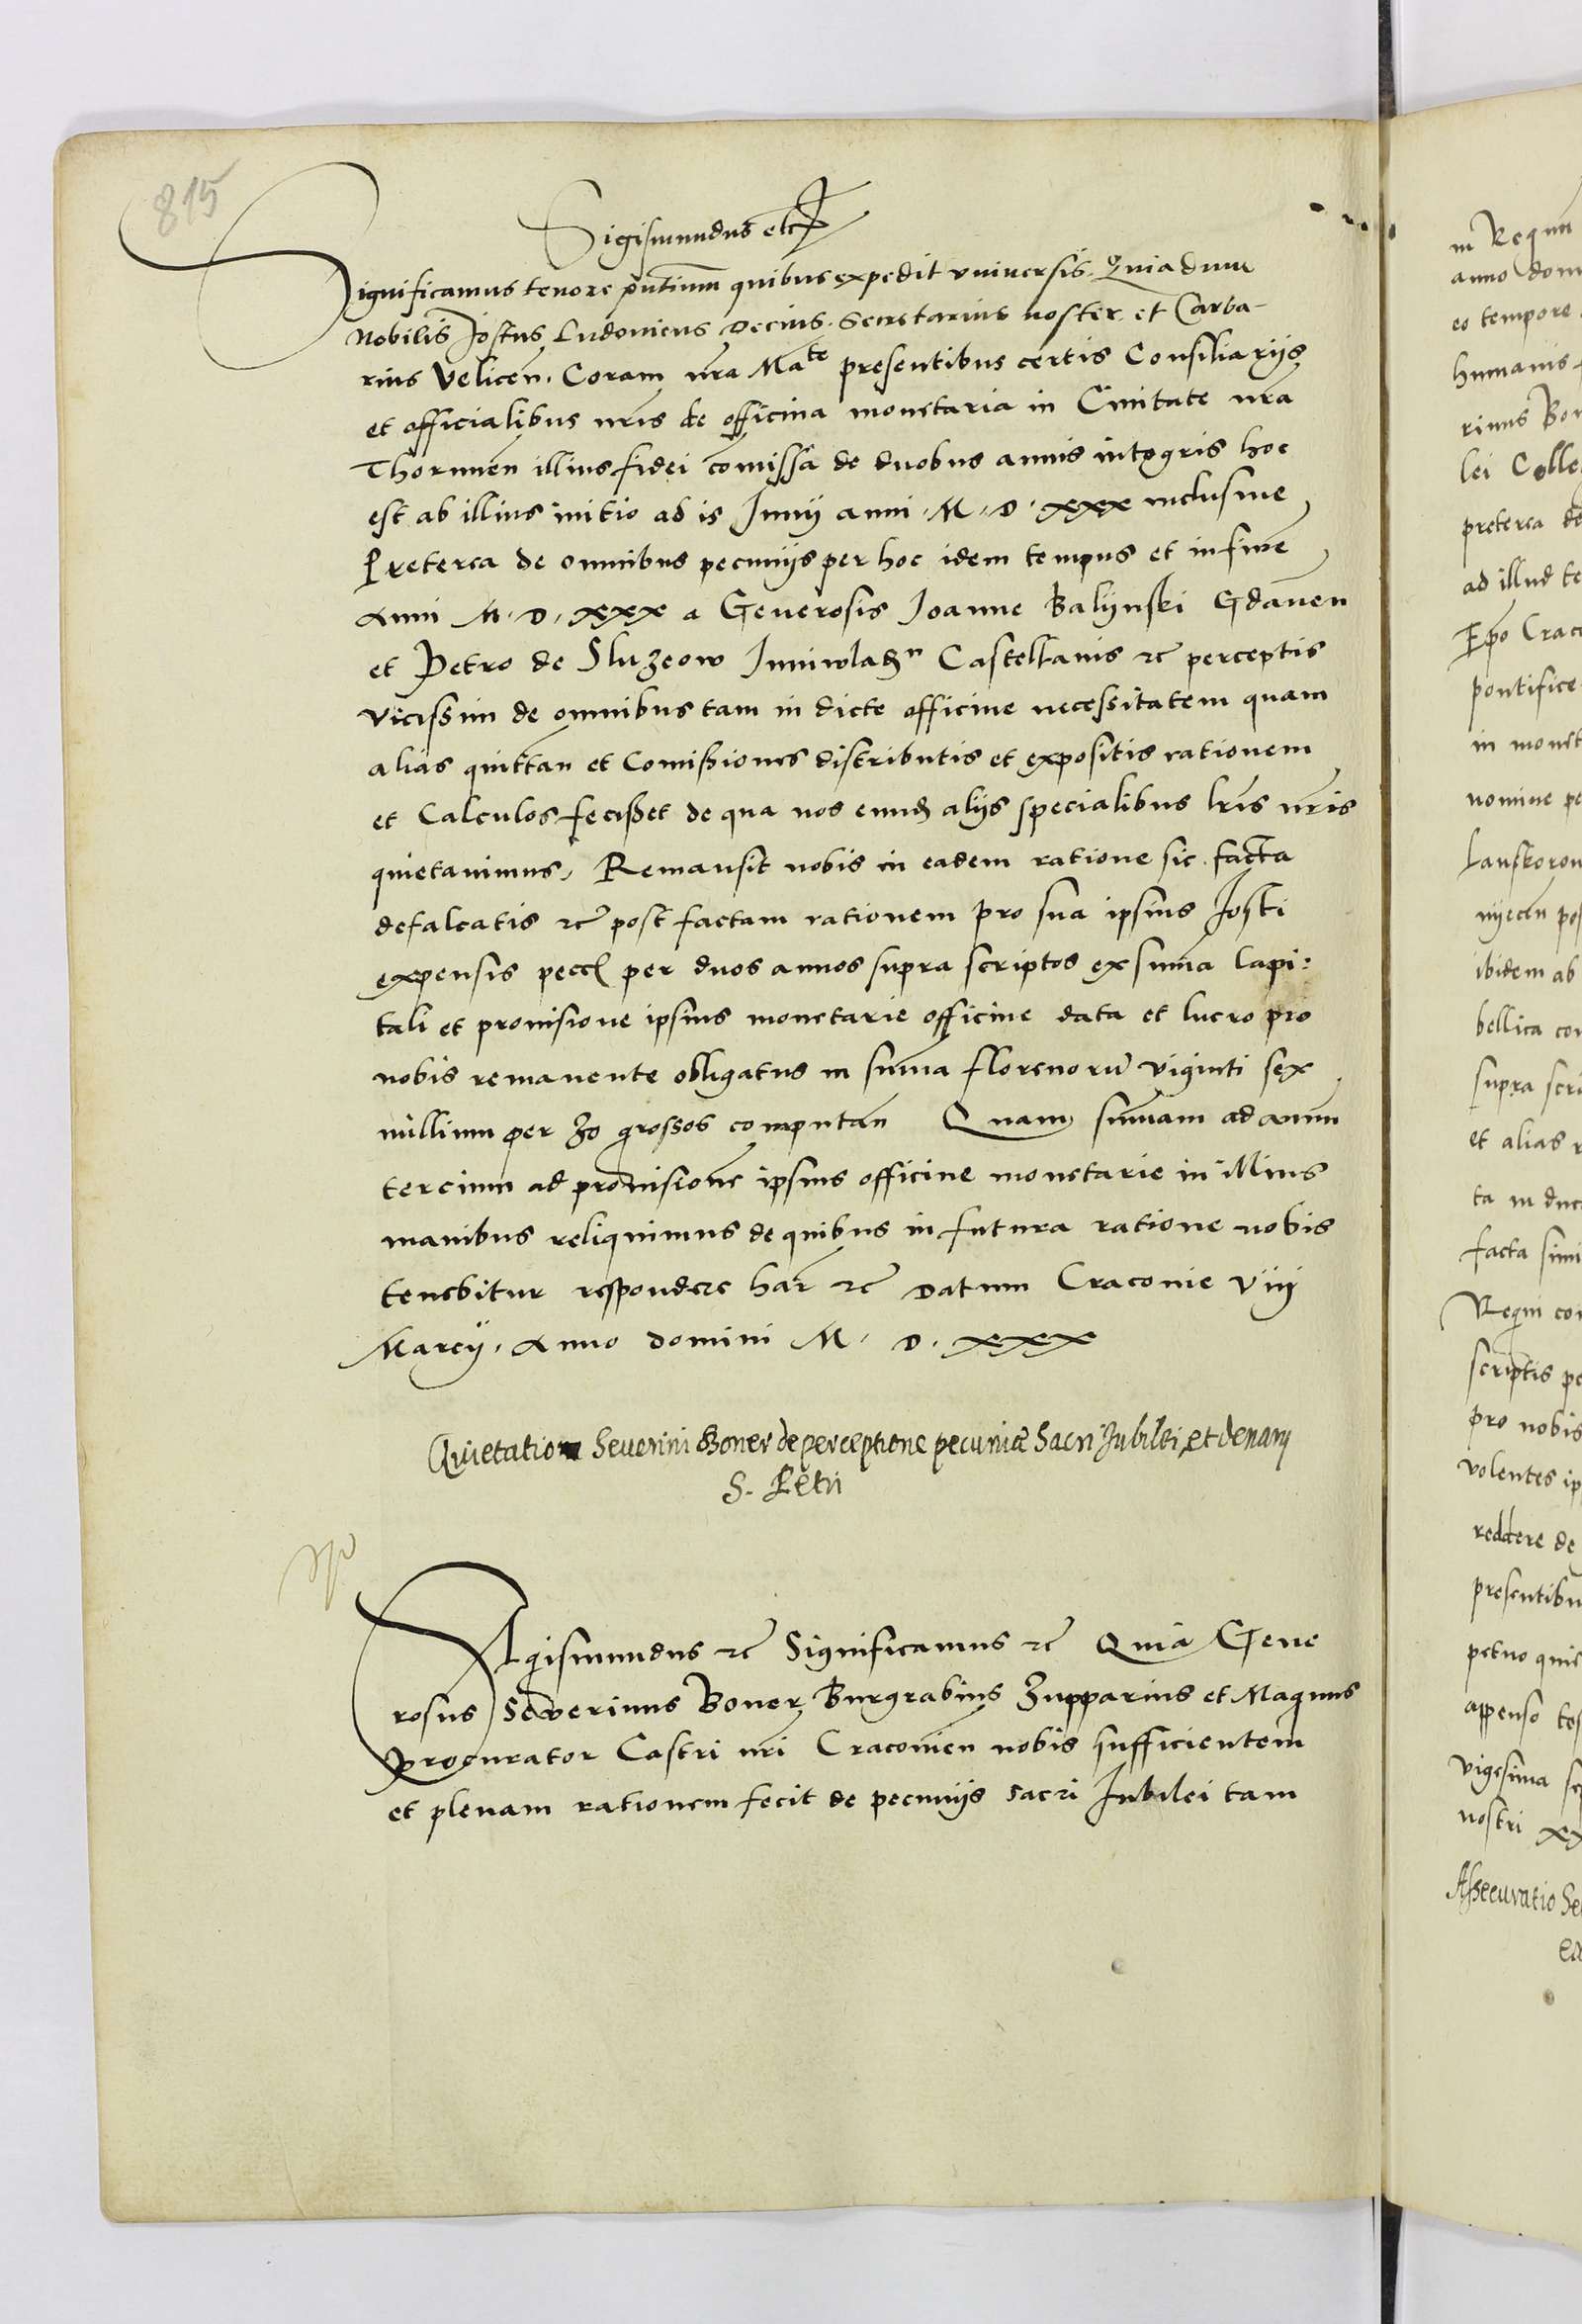 815
Sigismundus etc
Significamus tenore pntium quibus expedit vniuersis. Quia dum
Nobilis Jostus Ludouicus Decius Secretarius noster et Carba-
rius Velicen. Coram nra Mate presentibus certis Consiliarijs
et officialibus nris de officina monetaria in Ciuitate nra
Thorunen illius fidei comissa de duobus annis integris hoc
est ab illius initio ad is Junij anni M. D. xxx inclusiue
Preterea de omnibus pecunijs per hoc idem tempus et in fine
Anni M. D. xxx a Generosis Joanne Balijnski Gdanen
et Petro de Sluzeow Juniwladn Castellanis etc perceptis
vicissim de omnibus tam in dicte officine necessitatem quam
alias quittan et Comissiones distributis et expositis rationem
et Calculos fecisset de qua nos eund alijs specialibus lris nris
quietauimus, Remansit nobis in eadem ratione sic facta
defalcatis etc post factam rationem pro sua ipsius Josti
expensis per duos annos supra scriptos ex suma Capi:
tali et prouisione ipsius monetarie officine data et lucro pro
nobis remanente obligatus in suma florenoru viginti sex
millium per 30 grossos computan Quam sumam ad annu
tercium ad prouisione ipsius officine monetarie in illius
manibus reliquimus de quibus in futura ratione nobis
tenebitur respondere har etc Datum Craconie viij
Marcij. Anno domini M. D. xxx
Quietatio Seuerini Boner de perceptione pecuniae Sacri Jubilei et denarij
S. Petri
Sigismundus etc Significamus etc Quia Gene
rosus Seuerinus Boner Burgrabius Zupparius et Magnus
Procurator Castri nri Craconien nobis sufficientem
et plenam rationem fecit de pecunijs sacri Jubilei tam
in Regnu
anno dom
eo tempore
humanis
rinus Bon
lei Colle
preterea de
ad illud te
Epo Crac
pontifice
in monet
nomine pe
Lanskoron
ibidem ab
bellica con
supra scri
et alias
ta in duc
facta simi
Regni con
scriptis pe
pro nobis
volentes ip
reddere de
presentibu
petuo quie
appenso tes
vigesima se
nostri xx
Assecuratio Se